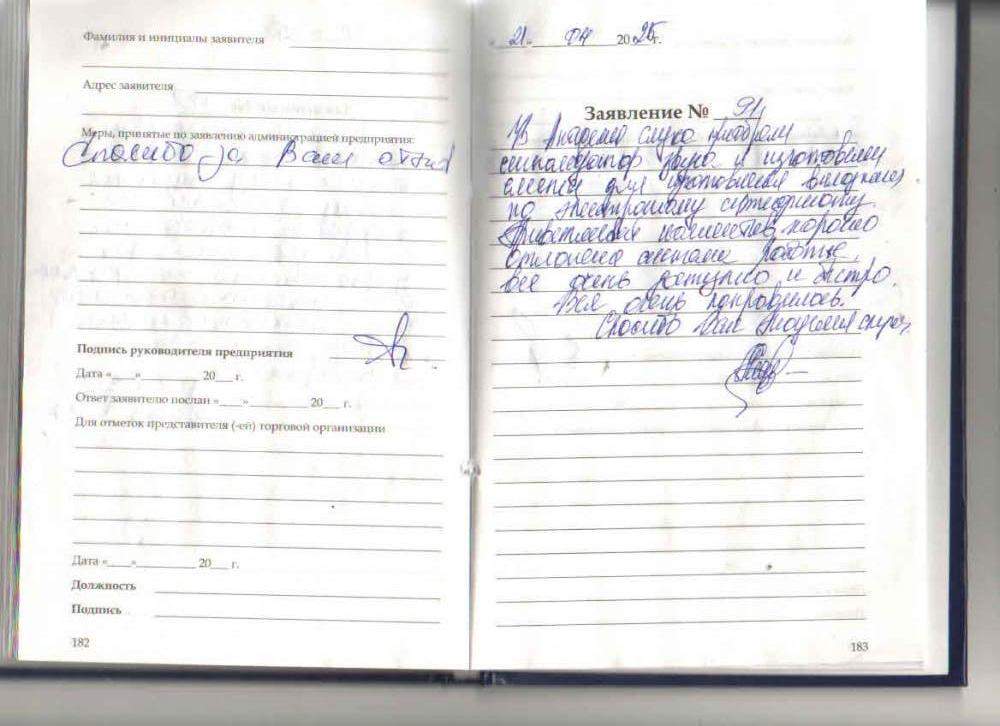 Фамилия и инициалы заявителя
Адрес заявителя
Меры, принятые по заявлению администрацией предприятия:
Спасибо за Ваш отзыв
Подпись руководителя предприятия
Дата «___»________ 20__ г.
Ответ заявителю послан «___»________ 20__ г.
Для отметок представителя (-ей) торговой организации
Дата «___»________ 20__ г.
Должность
Подпись
182
« 21 » 04 2025г.
Заявление № 91
В Академии слуха приобрели
сигнализатор звука и изготовили
слепки для изготовления вкладышей
по электронному сертификату.
хорошо
работа,
все очень доступно и быстро.
Все очень понравилось.
Спасибо Вам Академия слуха.
183